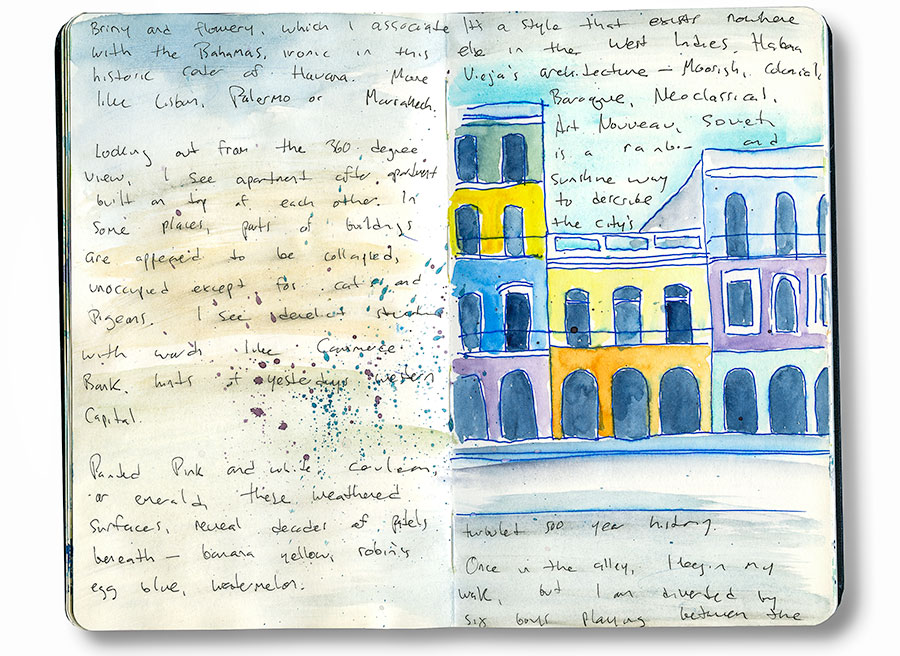 Briny and flowery, which I associate
with the Bahamas, ironic in this
historic center of Havana. More
like Lisbon, Palermo or Marrakech.
Looking out from the 360 degree
view, I see apartment after apartment
built on top of each other. In
some places, parts of buildings
are appeared to be collapsed,
unoccupied except for cats and
Pigeons. I see derelict structures
with words like Commerce
Bank, hints of yesterdays western
Capital.
Painted Pink and white, cerulean,
or emerald, these weathered
surfaces, reveal decades of pastels
beneath — banana yellow, robin's
egg blue, watermelon.
It's a style that exists nowhere
else in the West Indies. Habana
Vieja's architecture — Moorish, Colonial,
Baroque, Neoclassical,
Art Nouveau, Soviet
is a rainbow and
sunshine way
to describe
the city's
turbulent 500 year history.
Once in the alley, I begin my
walk, but I am diverted by
six boys playing between the